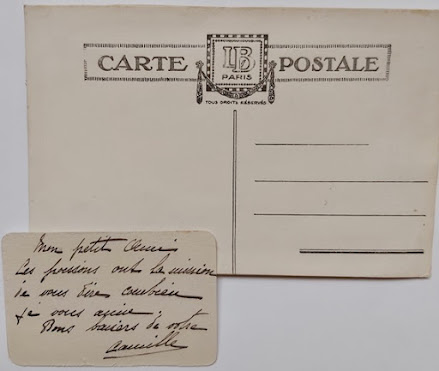 CARTE POSTALE
LB
PARIS
TOUS DROITS RÉSERVÉS
Mon petit
Ces poissons ont la mission
de vous dire combien
je vous aime.
Bons baisers de votre
Camille